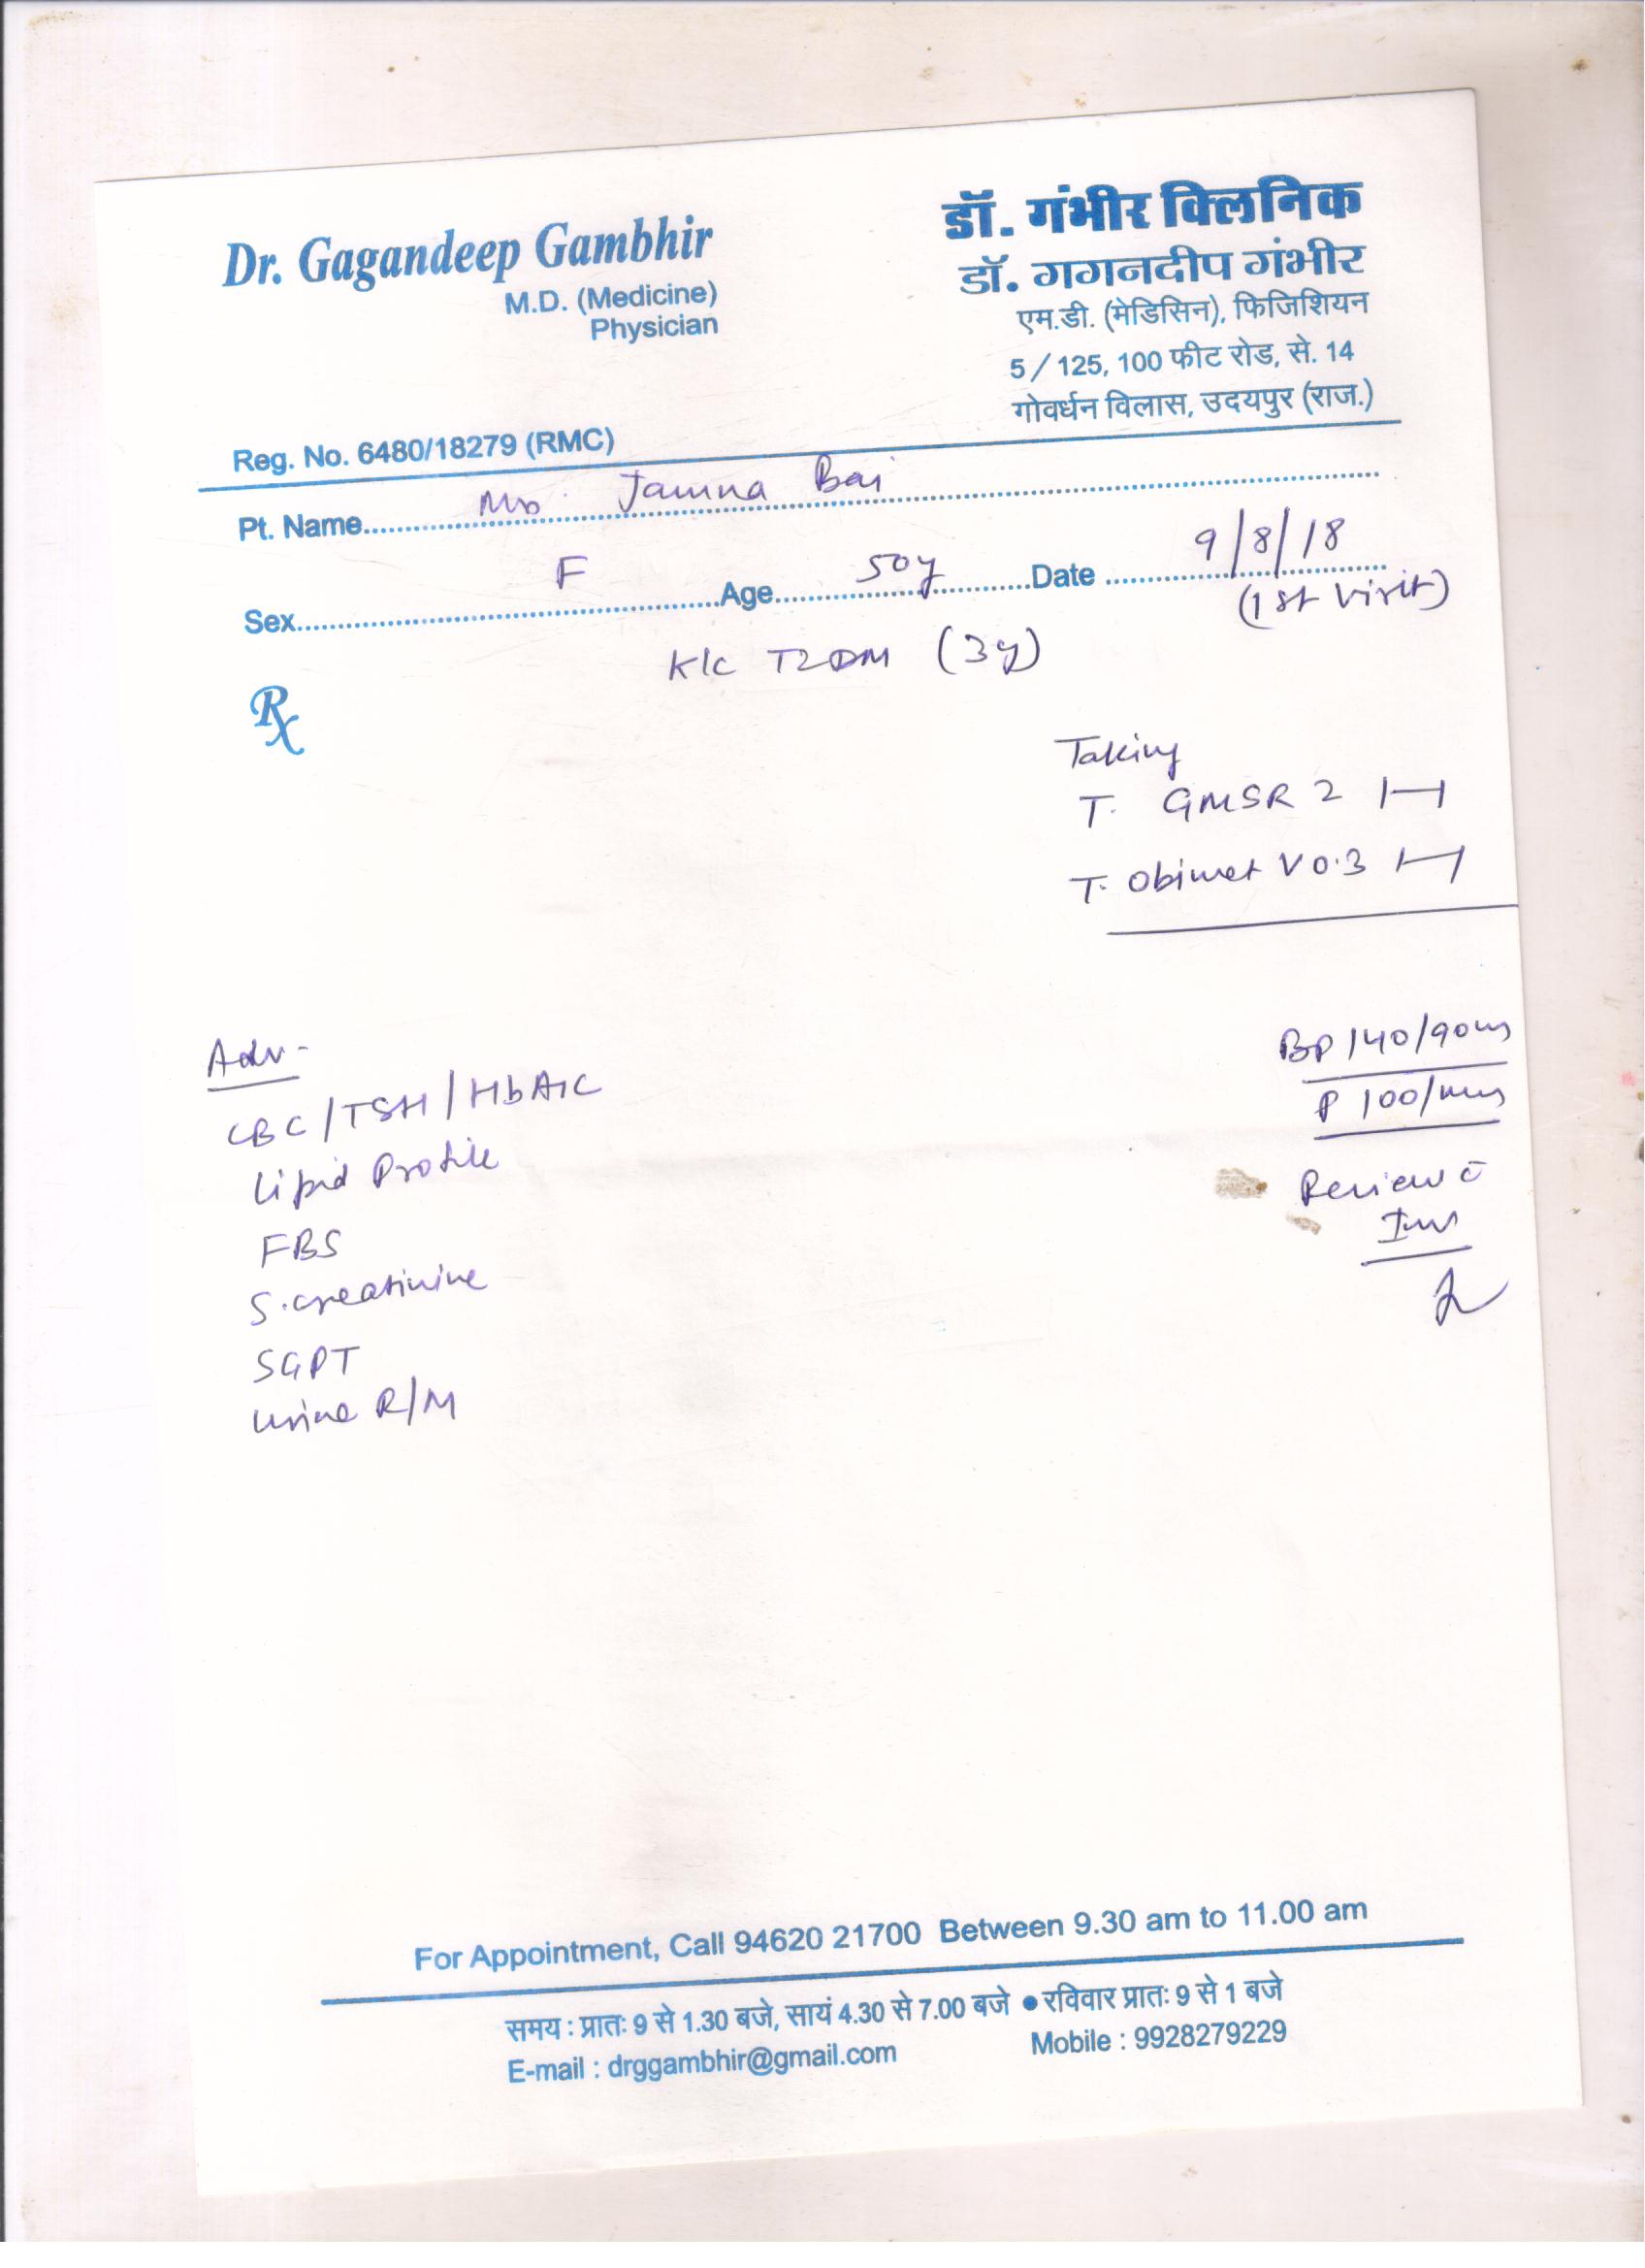 Dr. Gagandeep Gambhir
M.D. (Medicine)
Physician
Reg. No. 6480/18279 (RMC)
डॉ. गंभीर क्लिनिक
डॉ. गगनदीप गंभीर
एम.डी. (मेडिसिन), फिजिशियन
5 / 125, 100 फीट रोड, से. 14
गोवर्धन विलास, उदयपुर (राज.)
Pt. Name Mrs. Jamna Bai
Sex F Age 50y Date 9/8/18
(1st visit)
K/c T2DM (3y)
Rx
Taking
T. GMSR 2 1-1
T. Obimet V 0.3 1-1
Adv-
CBC/TSH/HbA1C
Lipid Profile
FBS
S. creatinine
SGPT
Urine R/M
BP 140/90
P 100/
Review c̄
Inv
For Appointment, Call 94620 21700 Between 9.30 am to 11.00 am
समय : प्रातः 9 से 1.30 बजे, सायं 4.30 से 7.00 बजे ● रविवार प्रातः 9 से 1 बजे
E-mail : drggambhir@gmail.com Mobile : 9928279229